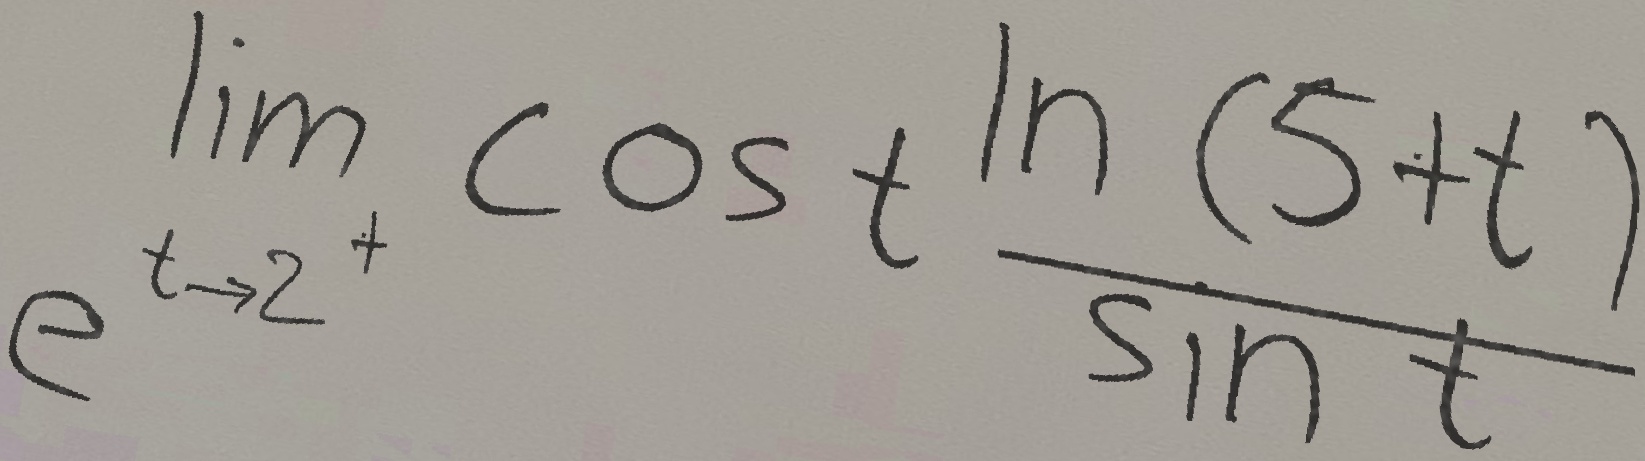 e^{\lim_{t \to 2^+} \cos t \frac{\ln(5+t)}{\sin t}}